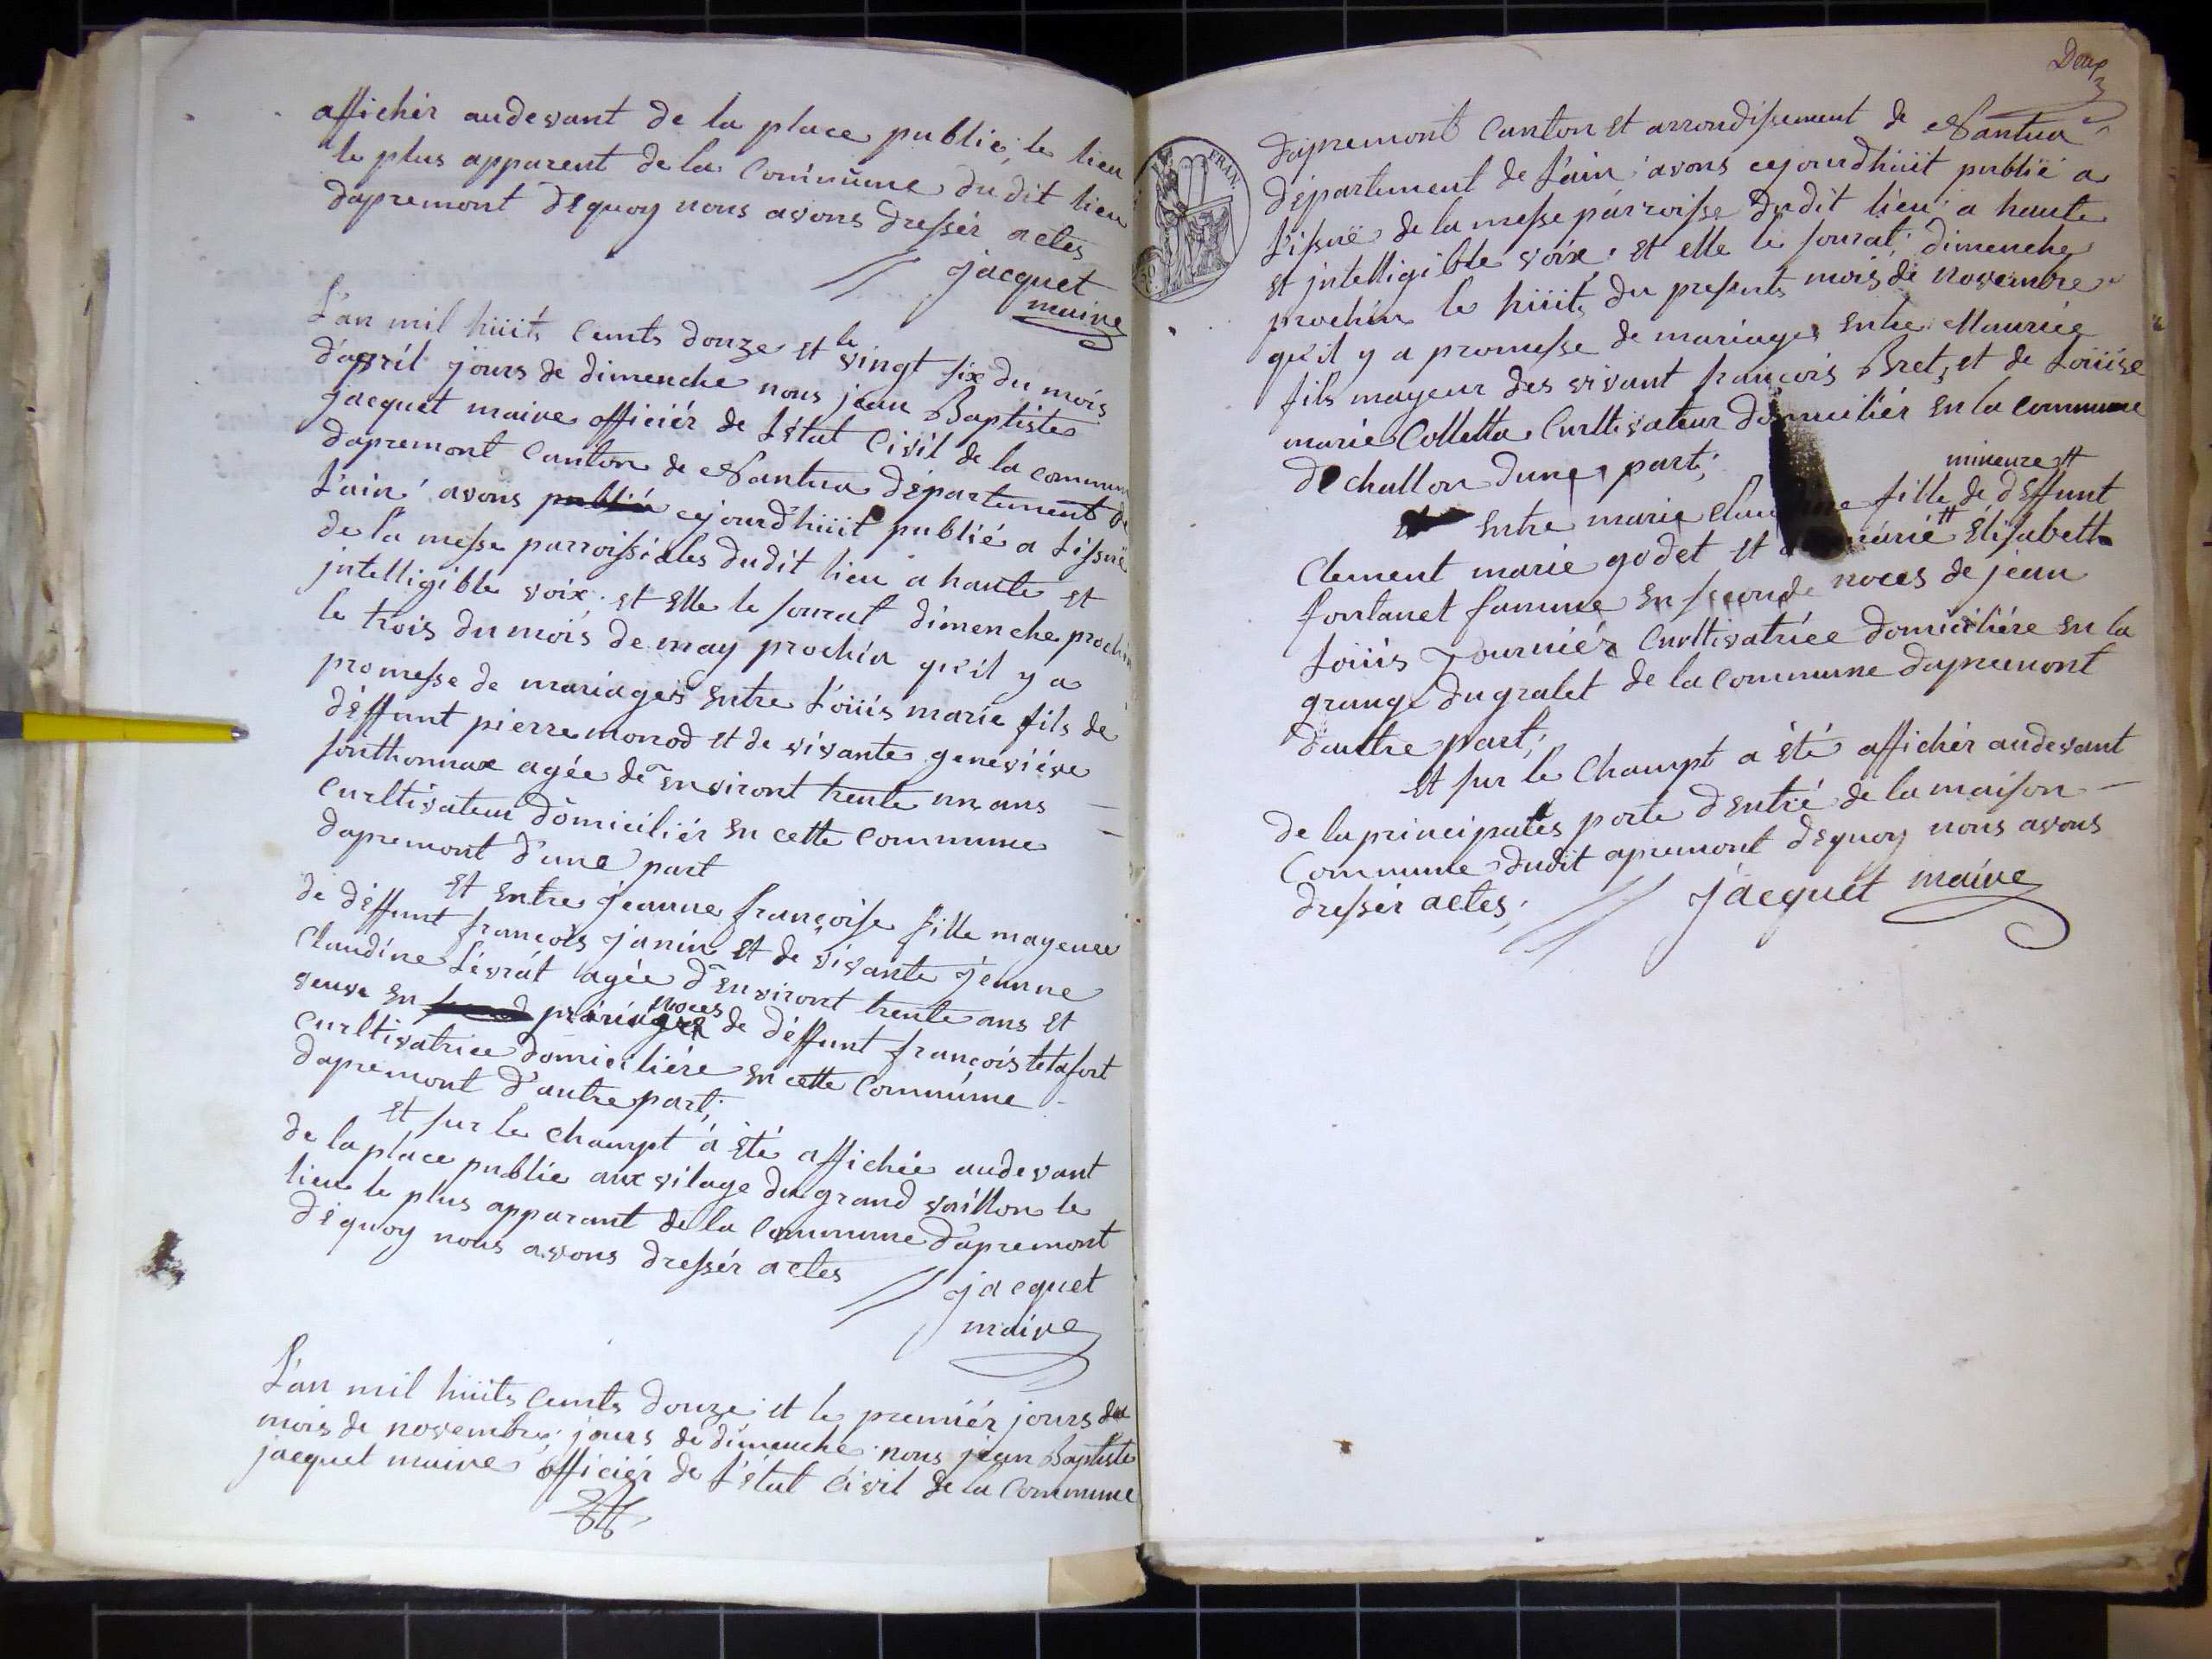 affichér audevant de la place publie, le lieu
le plus apparent de la Commune du dit lieu
dapremont dequoy nous avons dressér actes
jacquet
maire
L'an mil hüits cents douze et le vingt six du mois
d'apvril jours de dimenche nous jean Baptiste
jacquet maire officiér de L'état Civil de la commune
dapremont Canton de Nantua département de
L'ain avons publiéé cejourdhüit publié a Lissuë
de la messe parroissialles dudit lieu a haute et
intelligible voix. et elle le sourat dimenche prochin
le trois du mois de may prochin qu'il y a
promesse de mariages entre Loüis marie fils de
déffunt pierre monod et de vivante genevieve
sonthonnax agée de environt trente un ans
Curltivateur domiciliér en cette commune
dapremont d'une part
et entre jeanne françoise fille mayeure
de déffunt françois janin et de vivante jeanne
Claudine Lévrat agée d'environt trente ans et
veuve en noces de déffunt françois
curltivatrice domiciliére en cette Commüne
dapremont d'autre part;
et sur le champt à été affichée audevant
de la place publie aux vilage du grand vaillon le
lieu le plus apparant de la Commune d'apremont
dequoy nous avons dressér actes
jacquet
maire
L'an mil hüits cents douze et le premiér jours du
mois de novembre, jours de dimenche nous jean Baptiste
jacquet maire officiér de L'état Civil de la Commune
Deux
3
FRAN.
dapremont Canton et arrondissement de Nantua
département de L'ain avons cejourdhüit publié a
Lissuë de la messe párroisse dudit lieu a haute
et intelligible voix. et elle le sourat dimenche
prochin le hüits du presents mois de novembre
qu'il y a promesse de mariages entre Maurice
fils mayeur des vivant françois Bret, et de Loüise
marie Colletta Curltivateur domiciliér en la commune
de challon dune part;
entre marie fille de déffunt
mineure #
Clement marie godet et # élisabett
fontanet famme en seconde noces de jean
Loüis Tourniér Curltivatrice domiciliére en la
grange du gralet de la Commune dapremont
d'autre part;
et sur le Champt a été affichér audevant
de la principalles porte d'entré de la maison
Commune dudit apremont dequoy nous avons
dressér actes;
jacquet maire